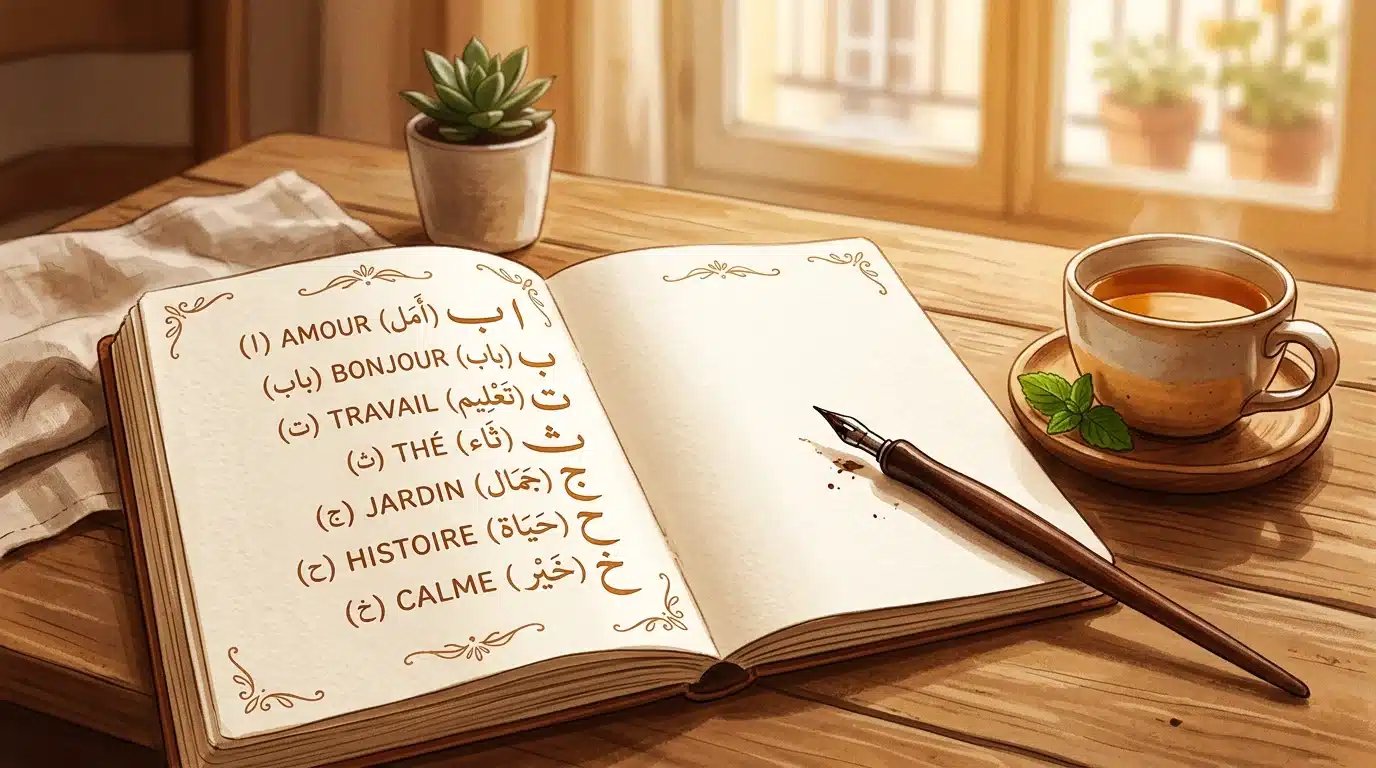 ا ب (أَمَل) AMOUR (ا)
ب (باب) BONJOUR (باب)
ت (تَعْلِيم) TRAVAIL (ت)
ث (ثَاء) THÉ (ث)
ج (جَمَال) JARDIN (ج)
ح (حَيَاة) HISTOIRE (ح)
خ (خَيْر) CALME (خ)